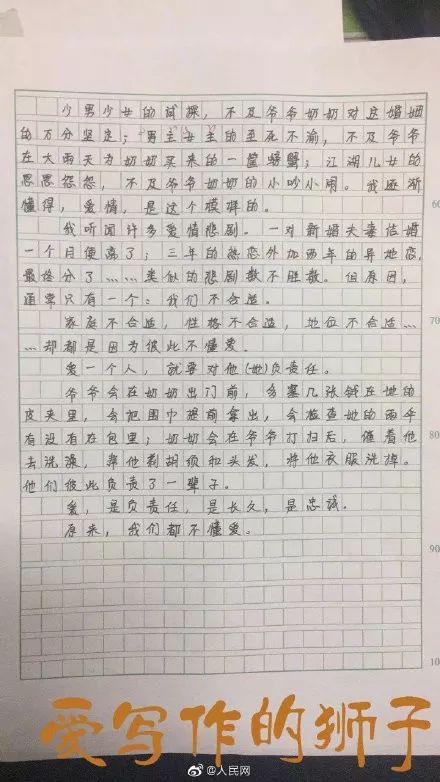 少男少女的试探，不及爷爷奶奶对这婚姻
的万分坚定；男主女主的至死不渝，不及爷爷
在大雨天为奶奶买来的一筐螃蟹；江湖儿女的
恩恩怨怨，不及爷爷奶奶的小吵小闹。我逐渐
懂得，爱情，是这个模样的。
我听闻许多爱情悲剧。一对新婚夫妻结婚
一个月便离了；三年的热恋外加两年的异地恋，
最终分了……类似的悲剧数不胜数。但原因，
通常只有一个：我们不合适。
家庭不合适，性格不合适，地位不合适……
……却都是因为彼此不懂爱。
爱一个人，就要对他(她)负责任。
爷爷会在奶奶出门前，多塞几张钱在她的
皮夹里，会把围巾提前拿出，会检查她的雨伞
有没有在包里；奶奶会在爷爷打扫后，催着他
去洗澡，帮他剃胡须和头发，将他衣服洗掉。
他们彼此负责了一辈子。
爱，是负责任，是长久，是忠诚。
原来，我们都不懂爱。
60
70
80
90
10
爱写作的狮子
@人民网